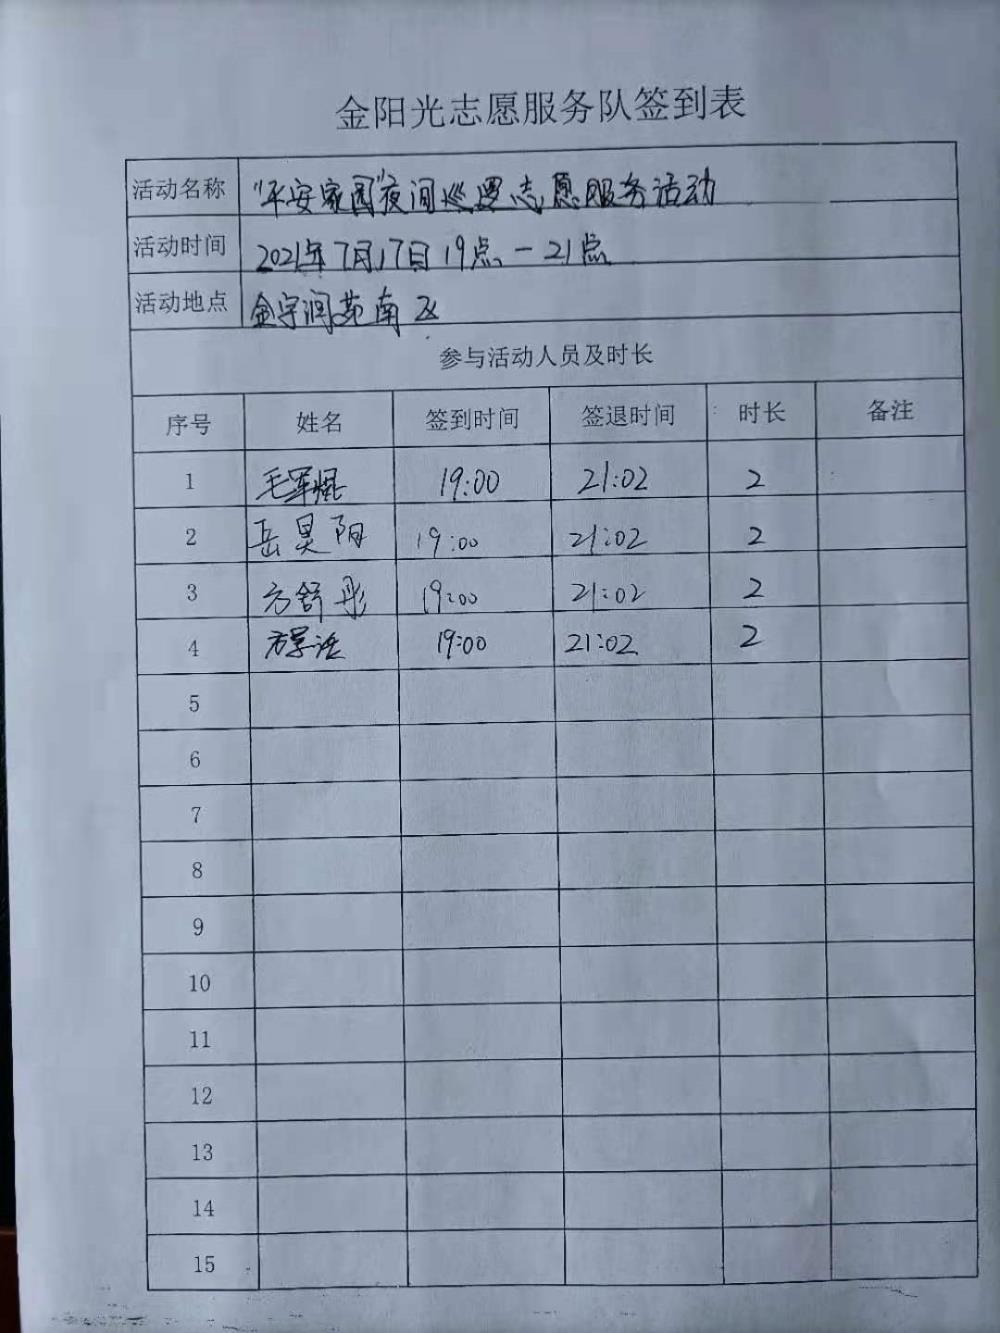 金阳光志愿服务队签到表
活动名称 "平安家园"夜间巡逻志愿服务活动
活动时间 2021年7月17日19点-21点
活动地点 金宇润苑南区
参与活动人员及时长
序号 姓名 签到时间 签退时间 时长 备注
1 毛军耀 19:00 21:02 2
2 岳昊阳 19:00 21:02 2
3 方舒彤 19:00 21:02 2
4 19:00 21:02 2
5
6
7
8
9
10
11
12
13
14
15